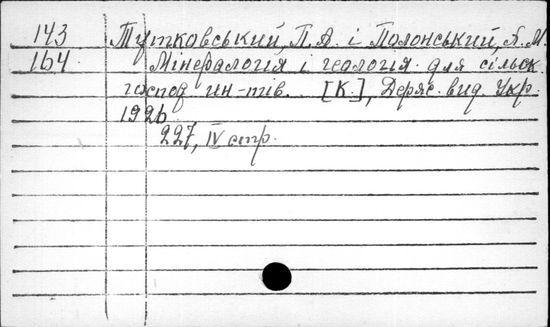 143 Тутковський, П. А. і Полонський, Х. М.
164 Мінералогія і геологія для сільск.
господ ин-тів. [К.], Держ. вид. Укр.
1926
227, IV стр.